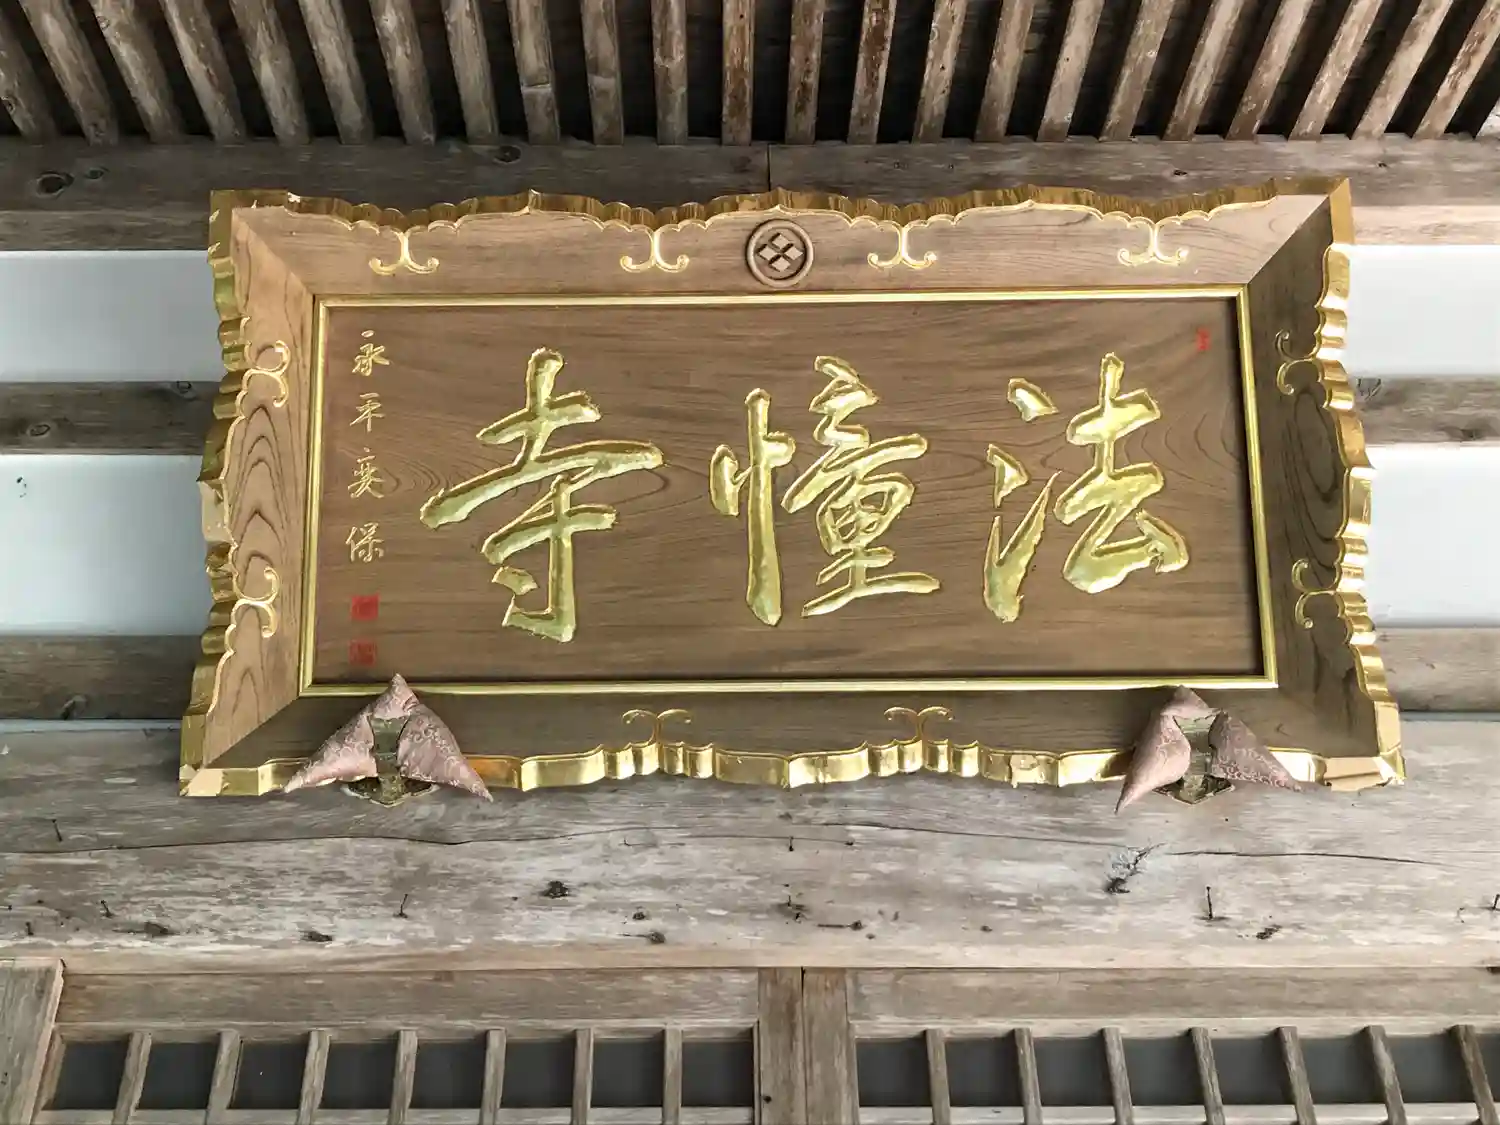 法憧寺
永平奕保